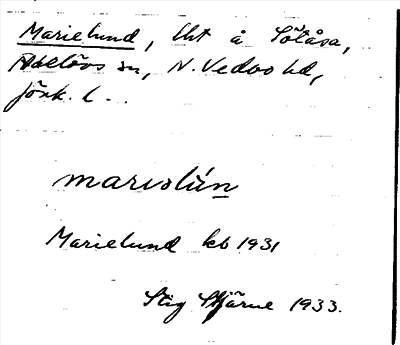 Marielund, lht å Sötåsa,
Adelövs sn, N. Vedbo hd,
Jönk. l.
marıolún
Marielund kb 1931
Stig Stjärne 1933.